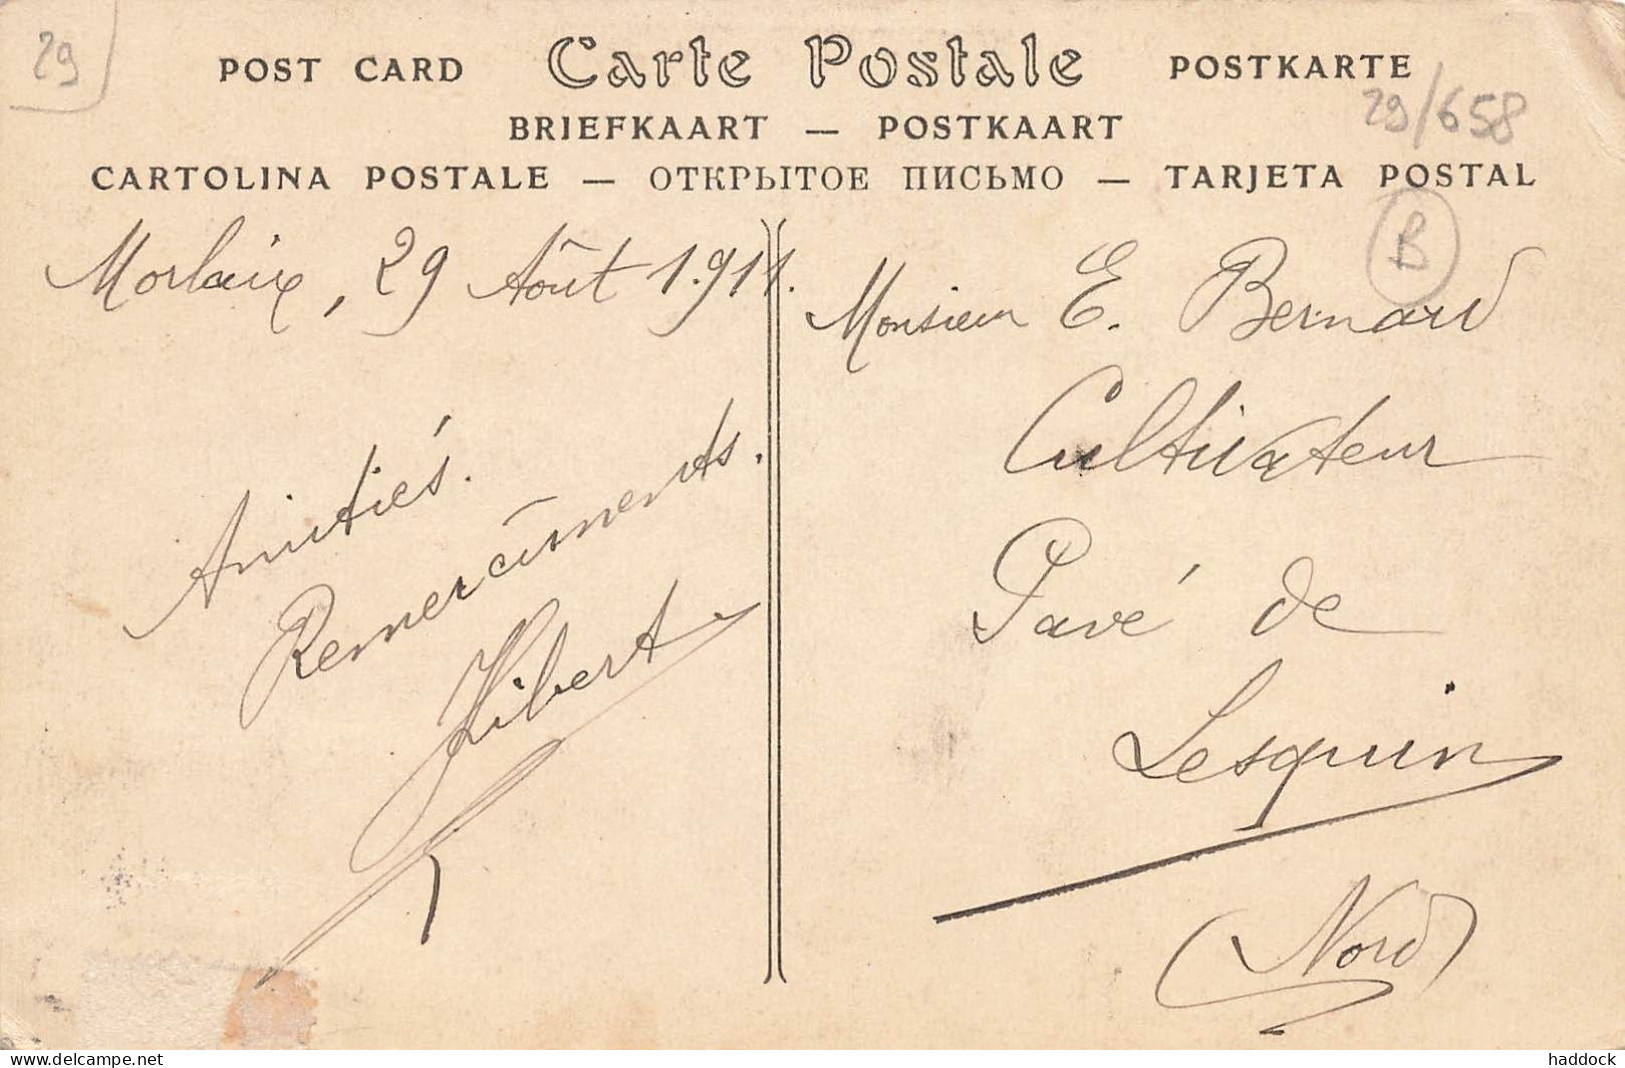 29
POST CARD Carte Postale POSTKARTE
29/658
BRIEFKAART — POSTKAART
CARTOLINA POSTALE — ОТКРЫТОЕ ПИСЬМО — TARJETA POSTAL
B
Morlaix, 29 Août 1.911.
Amitiés.
Remerciments.
Hibert
Monsieur E. Bernard
Cultivateur
Pavé de
Lesquin
(Nord)
www.delcampe.net
haddock